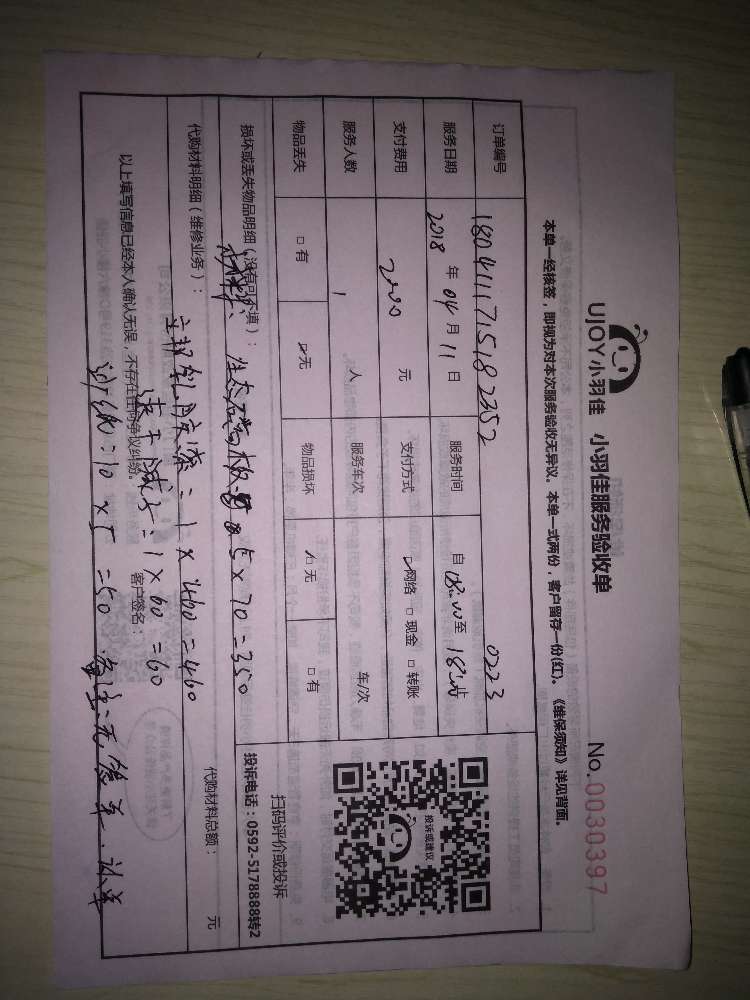 UJOY小羽佳 小羽佳服务验收单
No.0030397
本单一经核签，即视为对本次服务验收无异议。本单一式两份，客户留存一份(红)。《维保须知》详见背面。
订单编号 180411171518 2352 0223
服务日期 2018 年 04 月 11 日 服务时间 自 08:00 至 18 止
支付费用 2000 元 支付方式 ☑网络 □现金 □转账
服务人数 1 人 服务车次 车/次
物品丢失 □有 ☑无 物品损坏 ☑无 □有
投诉或建议
扫码评价或投诉
投诉电话：0592-5178888转2
损坏或丢失物品明细（没有可不填）：
5×70=350
代购材料明细（维修业务）： 代购材料总额： 元
1×460=460
1×60=60
以上填写信息已经本人确认无误，不存在任何争议纠纷。 客户签名：
砂纸：10×5=50